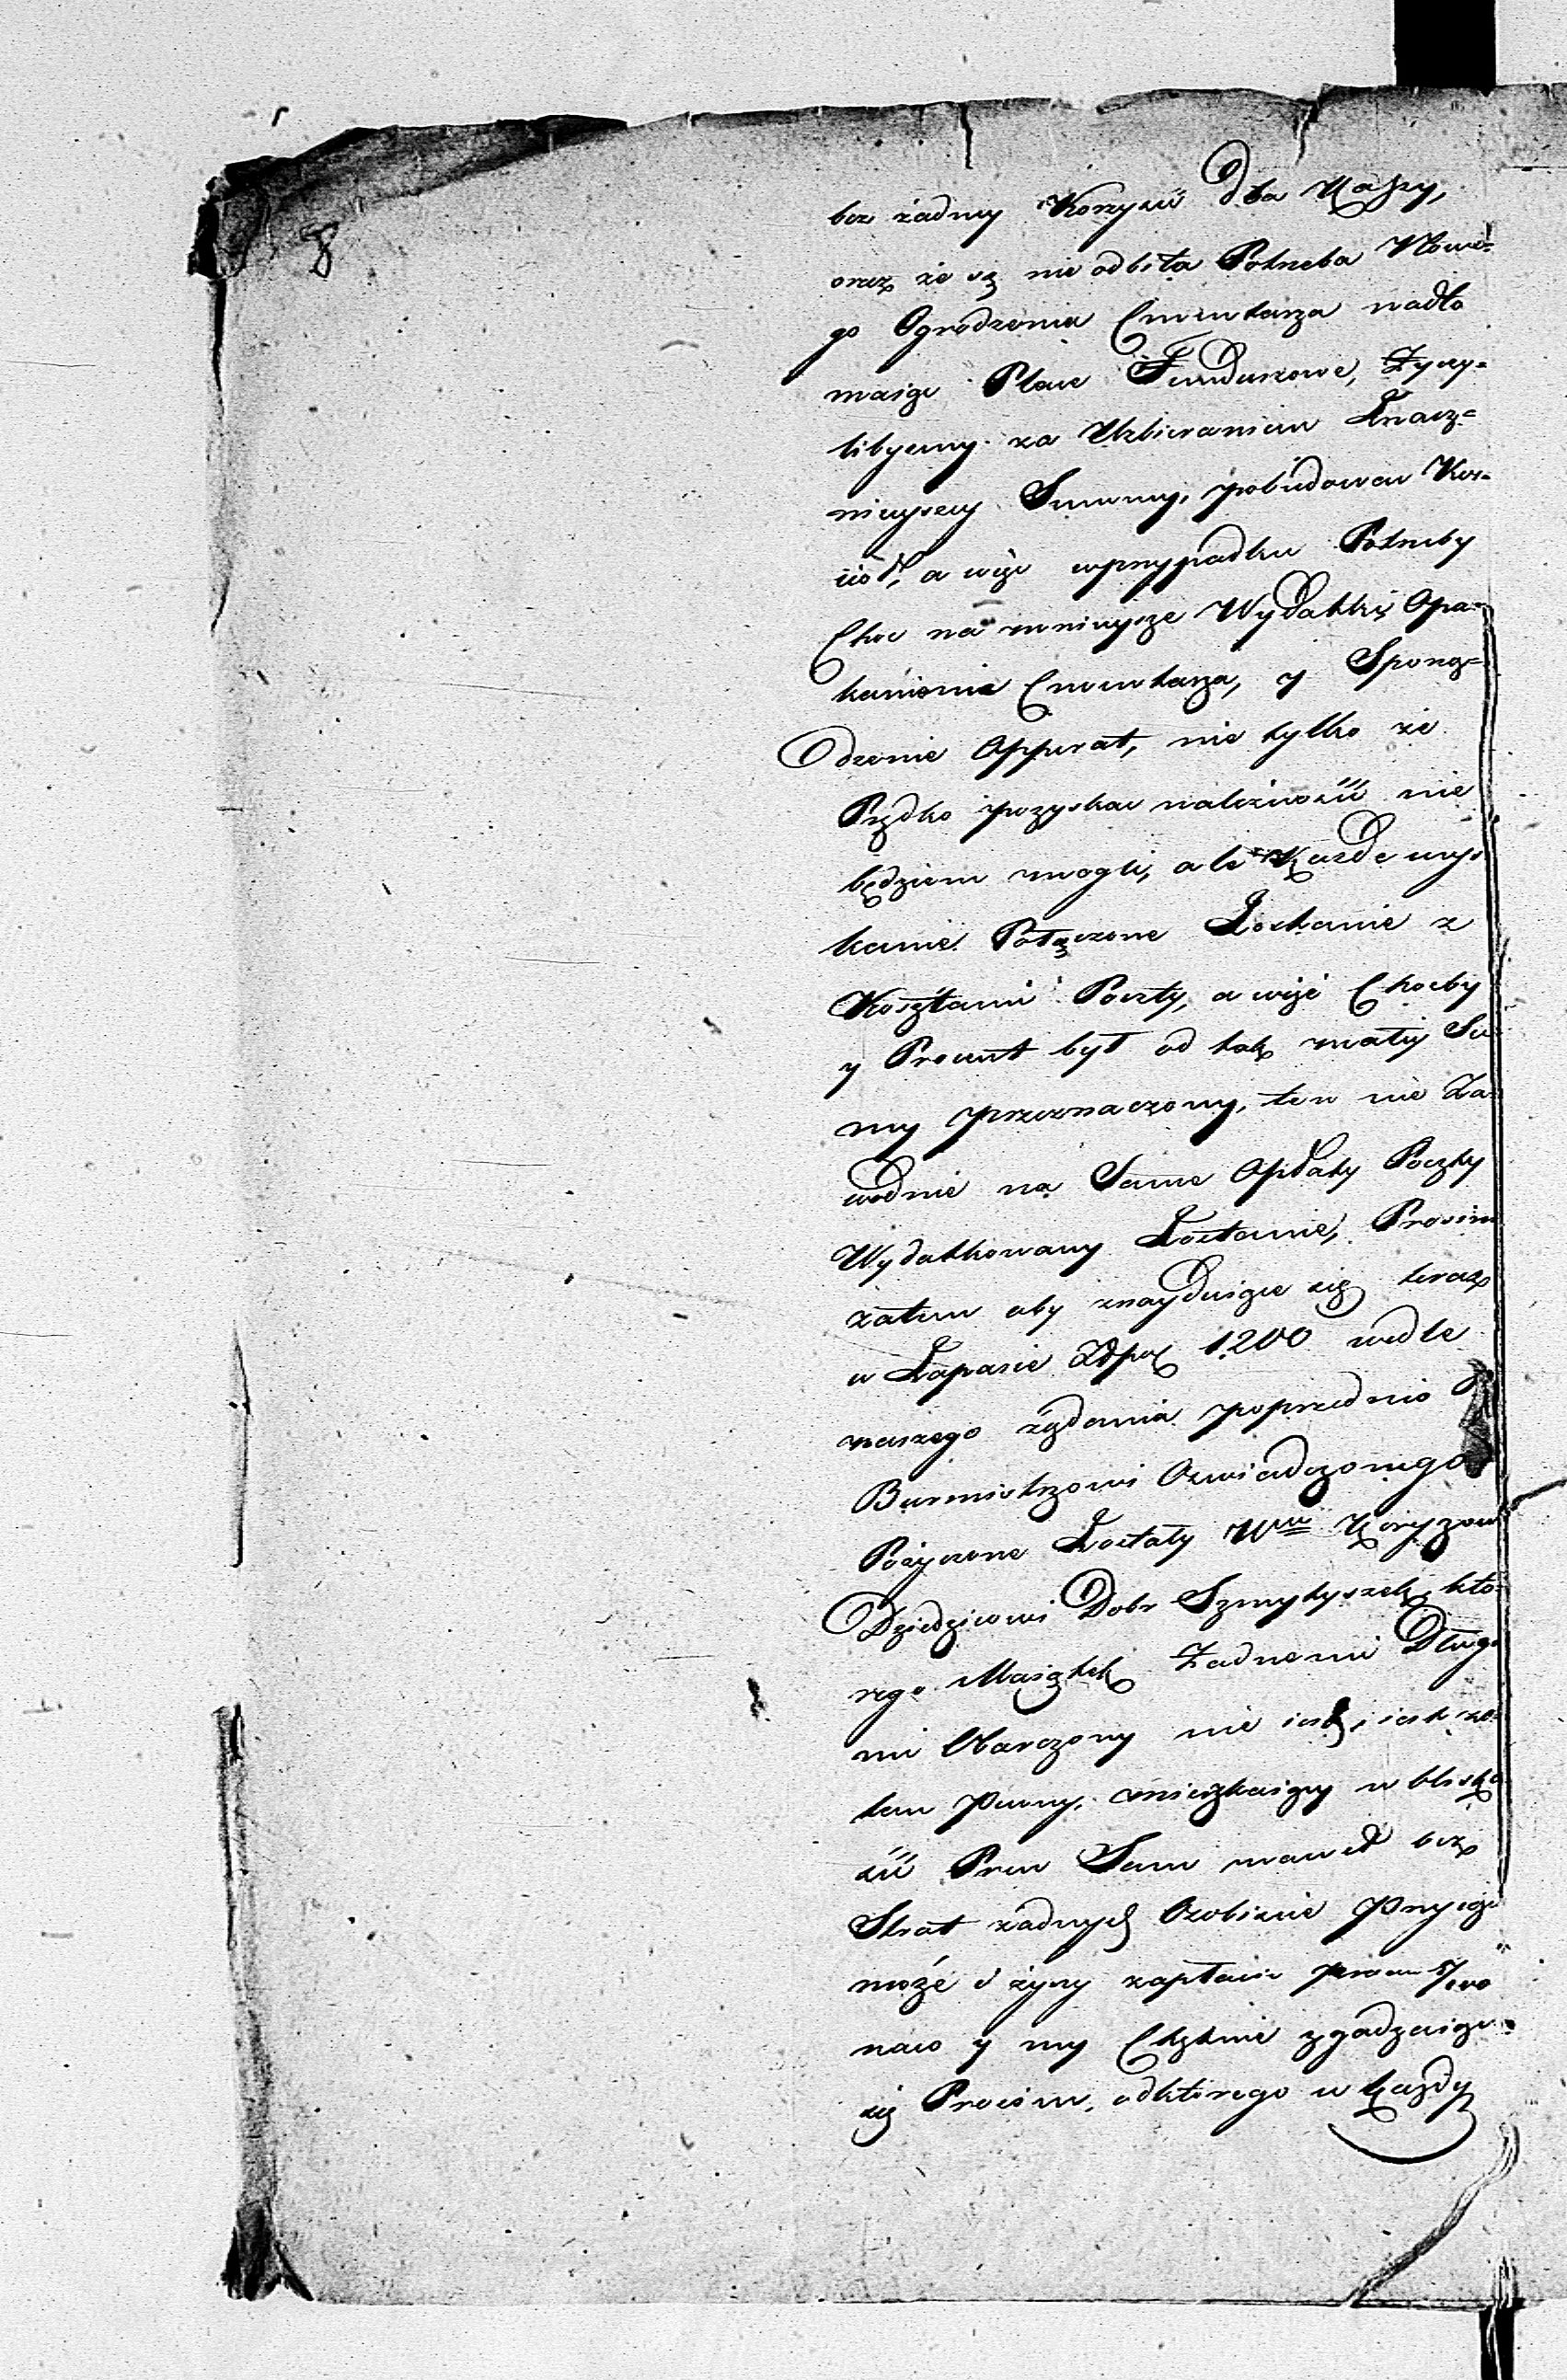 8
bez żadney Korzyści dla Kassy,
oraz że są nie odbita Potrzeba Nowe=
go Ogrodzenia Cmentarza nadto
maiąc Place Funduszowe, Życzy=
libyśmy za Uzbieraniem Znacz=
nieyszey Summy, pobudować Koś=
ciół, a więc wprzypadku Potrzeby
Choc na mnieysze Wydatki, Opa=
kanienia Cmentarza, y Sporzą=
dzenie Apparat, nie tylko że
Prędko pozyskac należności nie
będziem mogli, ale Każde uzys
kanie Połączone Zostanie z
Kosztami Poczty, a więc Chocby
y Procent był od tak małey Su
my przeznaczony, ten nie Za
wodnie na Same Opłaty Poczty
Wydatkowany Zostanie, Prosim
zatem aby znayduiące się teraz
w Zapasie Złpol 1200 wedle
naszego żądania poprzednio
Burmistrzowi Oświadczonego
Pożyczone Zostały Wmu
Dziedzicowi Dobr Szmytyszek, któ=
rego Maiątek Żadnemi Długa
mi Obarczony nie iest, iest za
tem Pewny, mieszkaiący w blisko
ści Pren Sam nawet bez
Strat żadnych Osobiście Przyiąć
może i życzy zapłacić procen 5/100
naco y my Chętnie zgadzaiąc
się Prosim, odktórego w każdy